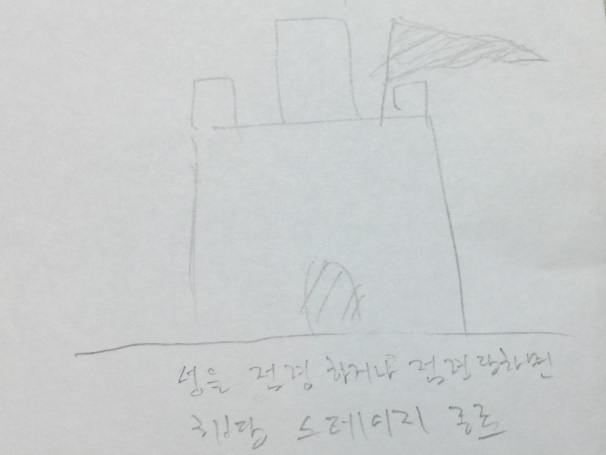 성을 점령 하거나 점령 당하면
해당 스테이지 종료